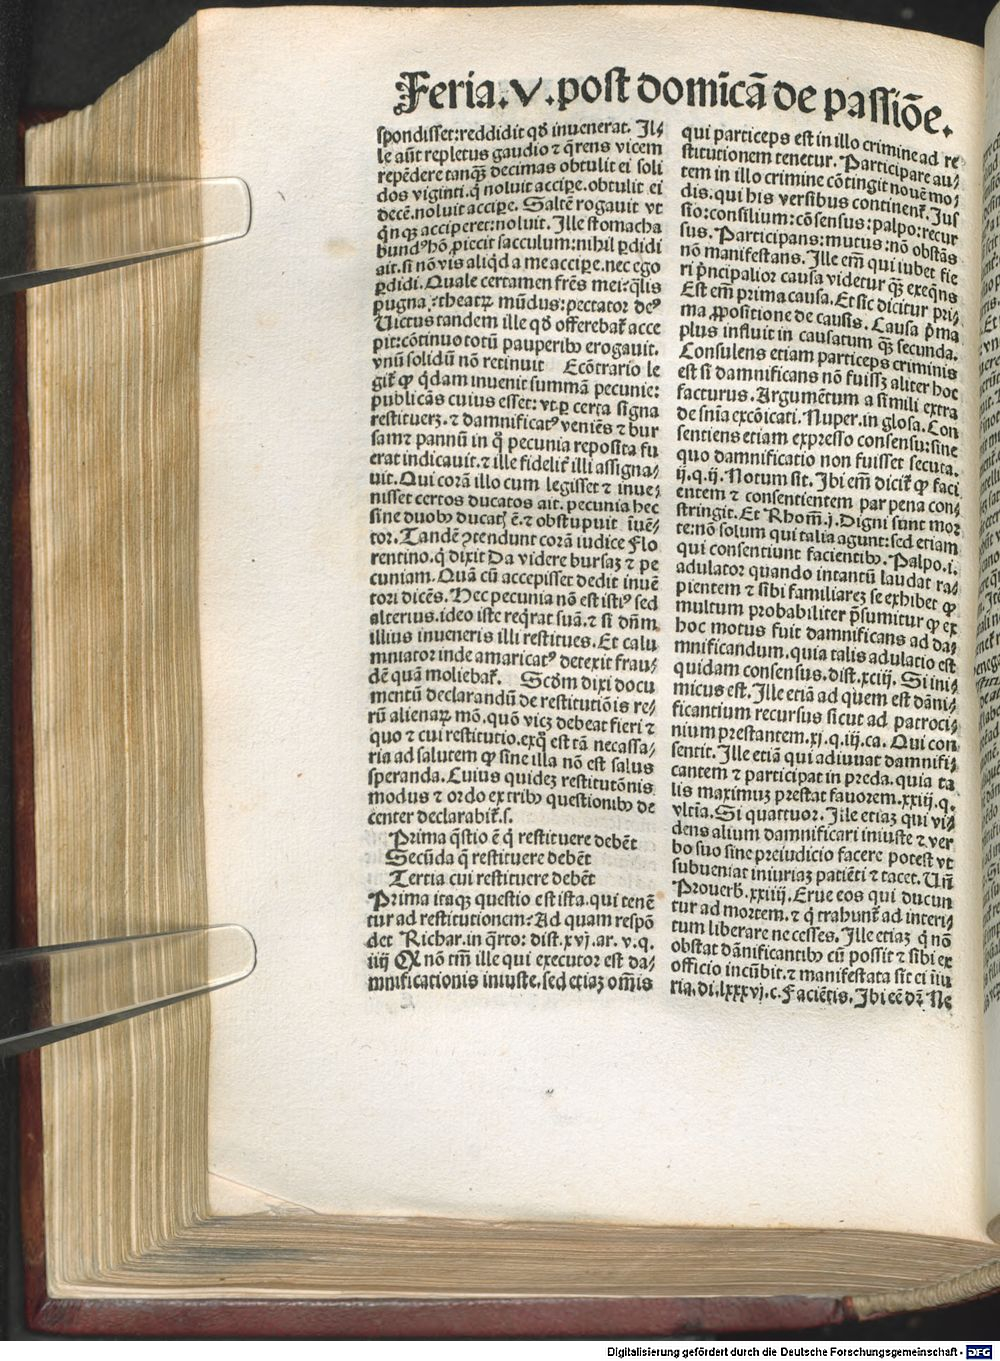 Feria.v.post domīcā de passiōe.
spondisset:reddidit qđ inuenerat. Il⸗
le aūt repletus gaudio ⁊ q̄rens vicem
repēdere tanqȝ decimas obtulit ei soli
dos viginti.q̄ noluit accipe.obtulit ei
decē.noluit accipe. Saltē rogauit vt
q̄nqȝ acciperet:noluit. Ille stomacha
bundꝰ hō ꝓiecit sacculum:nihil ꝑdidi
ait.si nō vis aliqd a me accipe.nec ego
ꝑdidi.Quale certamen frēs mei:q̄lis
pugna:theatrꝫ mūdus:pectator deꝰ
Uictus tandem ille qđ offerebat̄ acce
pit:cōtinuo totū pauperibꝰ erogauit.
vnū solidū nō retinuit Ecōtrario le
git̄ ꝙ q̄dam inuenit summā pecunie:
publicās cuius esset: vt ꝑ certa signa
restituerꝫ.⁊ damnificatꝰ veniēs ⁊ bur
samꝫ pannū in q̄ pecunia reposita fu
erat indicauit.⁊ ille fidelit̄ illi assigna⸗
uit.Qui corā illo cum legisset ⁊ inue⸗
nisset certos ducatos ait.pecunia hec
sine duobꝰ ducatꝭ ē.⁊ obstupuit īuē⸗
tor.Tandē ꝯtendunt corā iudice Flo
rentino.q̄ dixit Da videre bursaꝫ ⁊ pe
cuniam.Quā cū accepisset dedit inuē
tori dicēs.Hec pecunia nō est istiꝰ sed
alterius.ideo iste reqrat suā.⁊ si dn̄m
illius inueneris illi restitues.Et calu
mniator inde amaricatꝰ detexit frau⸗
dē quā moliebat̄. Scđm dixi docu
mentū declarandū de restitutiōis re⸗
rū alienaꝝ mō.quō vicꝫ debeat fieri ⁊
quo ⁊ cui restitutio.exq̄ est tā necessa⸗
ria ad salutem ꝙ sine illa nō est salus
speranda.Cuius quidēꝫ restitutōnis
modus ⁊ ordo ex tribꝰ questionibꝰ de
center declarabit̄.s.
Prima q̄stio ē q̄ restituere debēt
Secūda q̄ restituere debēt
Tertia cui restituere debēt
Prima itaqȝ questio est ista.qui tenē
tur ad restitutionem:Ad quam respō
det Richar.in q̄rto: dist.xvj.ar.v.q.
iiij Ꝙ nō tm̄ ille qui executor est da⸗
mnificationis iniuste.sed etiaꝫ om̄is
qui particeps est in illo crimine ad re⸗
stitutionem tenetur. Participare au⸗
tem in illo crimine cōtingit nouē mo⸗
dis.qui his versibus continent̄. Jus
sio:consilium:cōsensus:palpo:recur
sus. Participans:mutus:nō obstās
nō manifestans.Ille em̄ qui iubet fie
ri p̄ncipalior causa videtur qȝ exeq̄ns
Est em̄ prima causa.Et sic dicitur pri⸗
ma ꝓpositione de causis. Causa p̄ma
plus influit in causatum qȝ secunda.
Consulens etiam particeps criminis
est si damnificans nō fuissꝫ aliter hoc
facturus.Argumētum a simili extra
de snia excōicati.Nuper.in glosa.Con
sentiens etiam expresso consensu:sine
quo damnificatio non fuisset secuta.
ij.q.ij.Notum sit.Ibi em̄ dicit̄ ꝙ faci
entem ⁊ consentientem par pena con⸗
stringit.Et Rhom̄.j.Digni sunt mor
te:nō solum qui talia agunt:sed etiam
qui consentiunt facientibꝰ. Palpo.i.
adulator quando intantū laudat ra⸗
pientem ⁊ sibi familiareꝫ se exhibet ꝙ
multum probabiliter p̄sumitur ꝙ ex
hoc motus fuit damnificans ad da⸗
mnificandum.quia talis adulatio est
quidam consensus.dist.xciij. Si ini⸗
micus est.Ille etiā ad quem est dāni⸗
ficantium recursus sicut ad patroci⸗
nium prestantem.xj.q.iij.ca. Qui con
sentit.Ille etiā qui adiuuat damnifi⸗
cantem ⁊ participat in preda.quia ta
lis maximuꝫ prestat fauorem.xxiij.q.
vltīa.Si quattuor.Ille etiaꝫ qui vi⸗
dens alium damnificari iniuste ⁊ ver
bo suo sine preiudicio facere potest vt
subueniat iniuriaꝫ patiēti ⁊ tacet.Un̄
Prouerb.xxiiij. Erue eos qui ducun
tur ad mortem.⁊ q̄ trahunt̄ ad interi⸗
tum liberare ne cesses.Ille etiaꝫ q̄ nō
obstat dānificantibꝰ cū possit ⁊ sibi ex
officio incūbit.⁊ manifestata sic ei īiu
ria.di.lxxxvj.c.Faciētis.Ibi eē dꝫ Ne
Digitalisierung gefördert durch die Deutsche Forschungsgemeinschaft - DFG